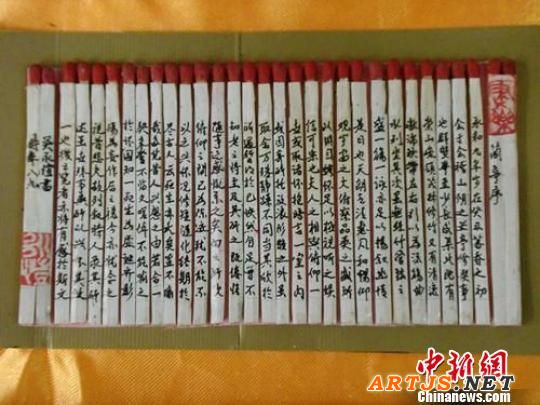 蘭亭序
永和九年歲在癸丑暮春之初
會于會稽山陰之蘭亭脩禊事
也群賢畢至少長咸集此地有
崇山峻領茂林脩竹又有清流
激湍暎帶左右引以為流觴曲
水列坐其次雖無絲竹管弦之
盛一觴一詠亦足以暢敘幽情
是日也天朗氣清惠風和暢仰
觀宇宙之大俯察品類之盛所
以遊目騁懷足以極視聽之娛
信可樂也夫人之相與俯仰一
世或取諸懷抱悟言一室之內
或因寄所託放浪形骸之外雖
取舍萬殊靜躁不同當其欣於
所遇暫得於己快然自足不
知老之將至及其所之既惓情
隨事遷感慨係之矣向之所欣
俯仰之間已為陳迹猶不能不
以之興懷況脩短隨化終期於
盡古人云死生亦大矣豈不痛
哉每覽昔人興感之由若合一
契未嘗不臨文嗟悼不能喻之
於懷固知一死生為虛誕齊彭
殤為妄作後之視今亦由今之
視昔悲夫故列敘時人錄其所
述雖世殊事異所以興懷其致
一也後之覽者亦將有感於斯文
書
時年八
中新網
ARTJS.NET
Chinanews.com